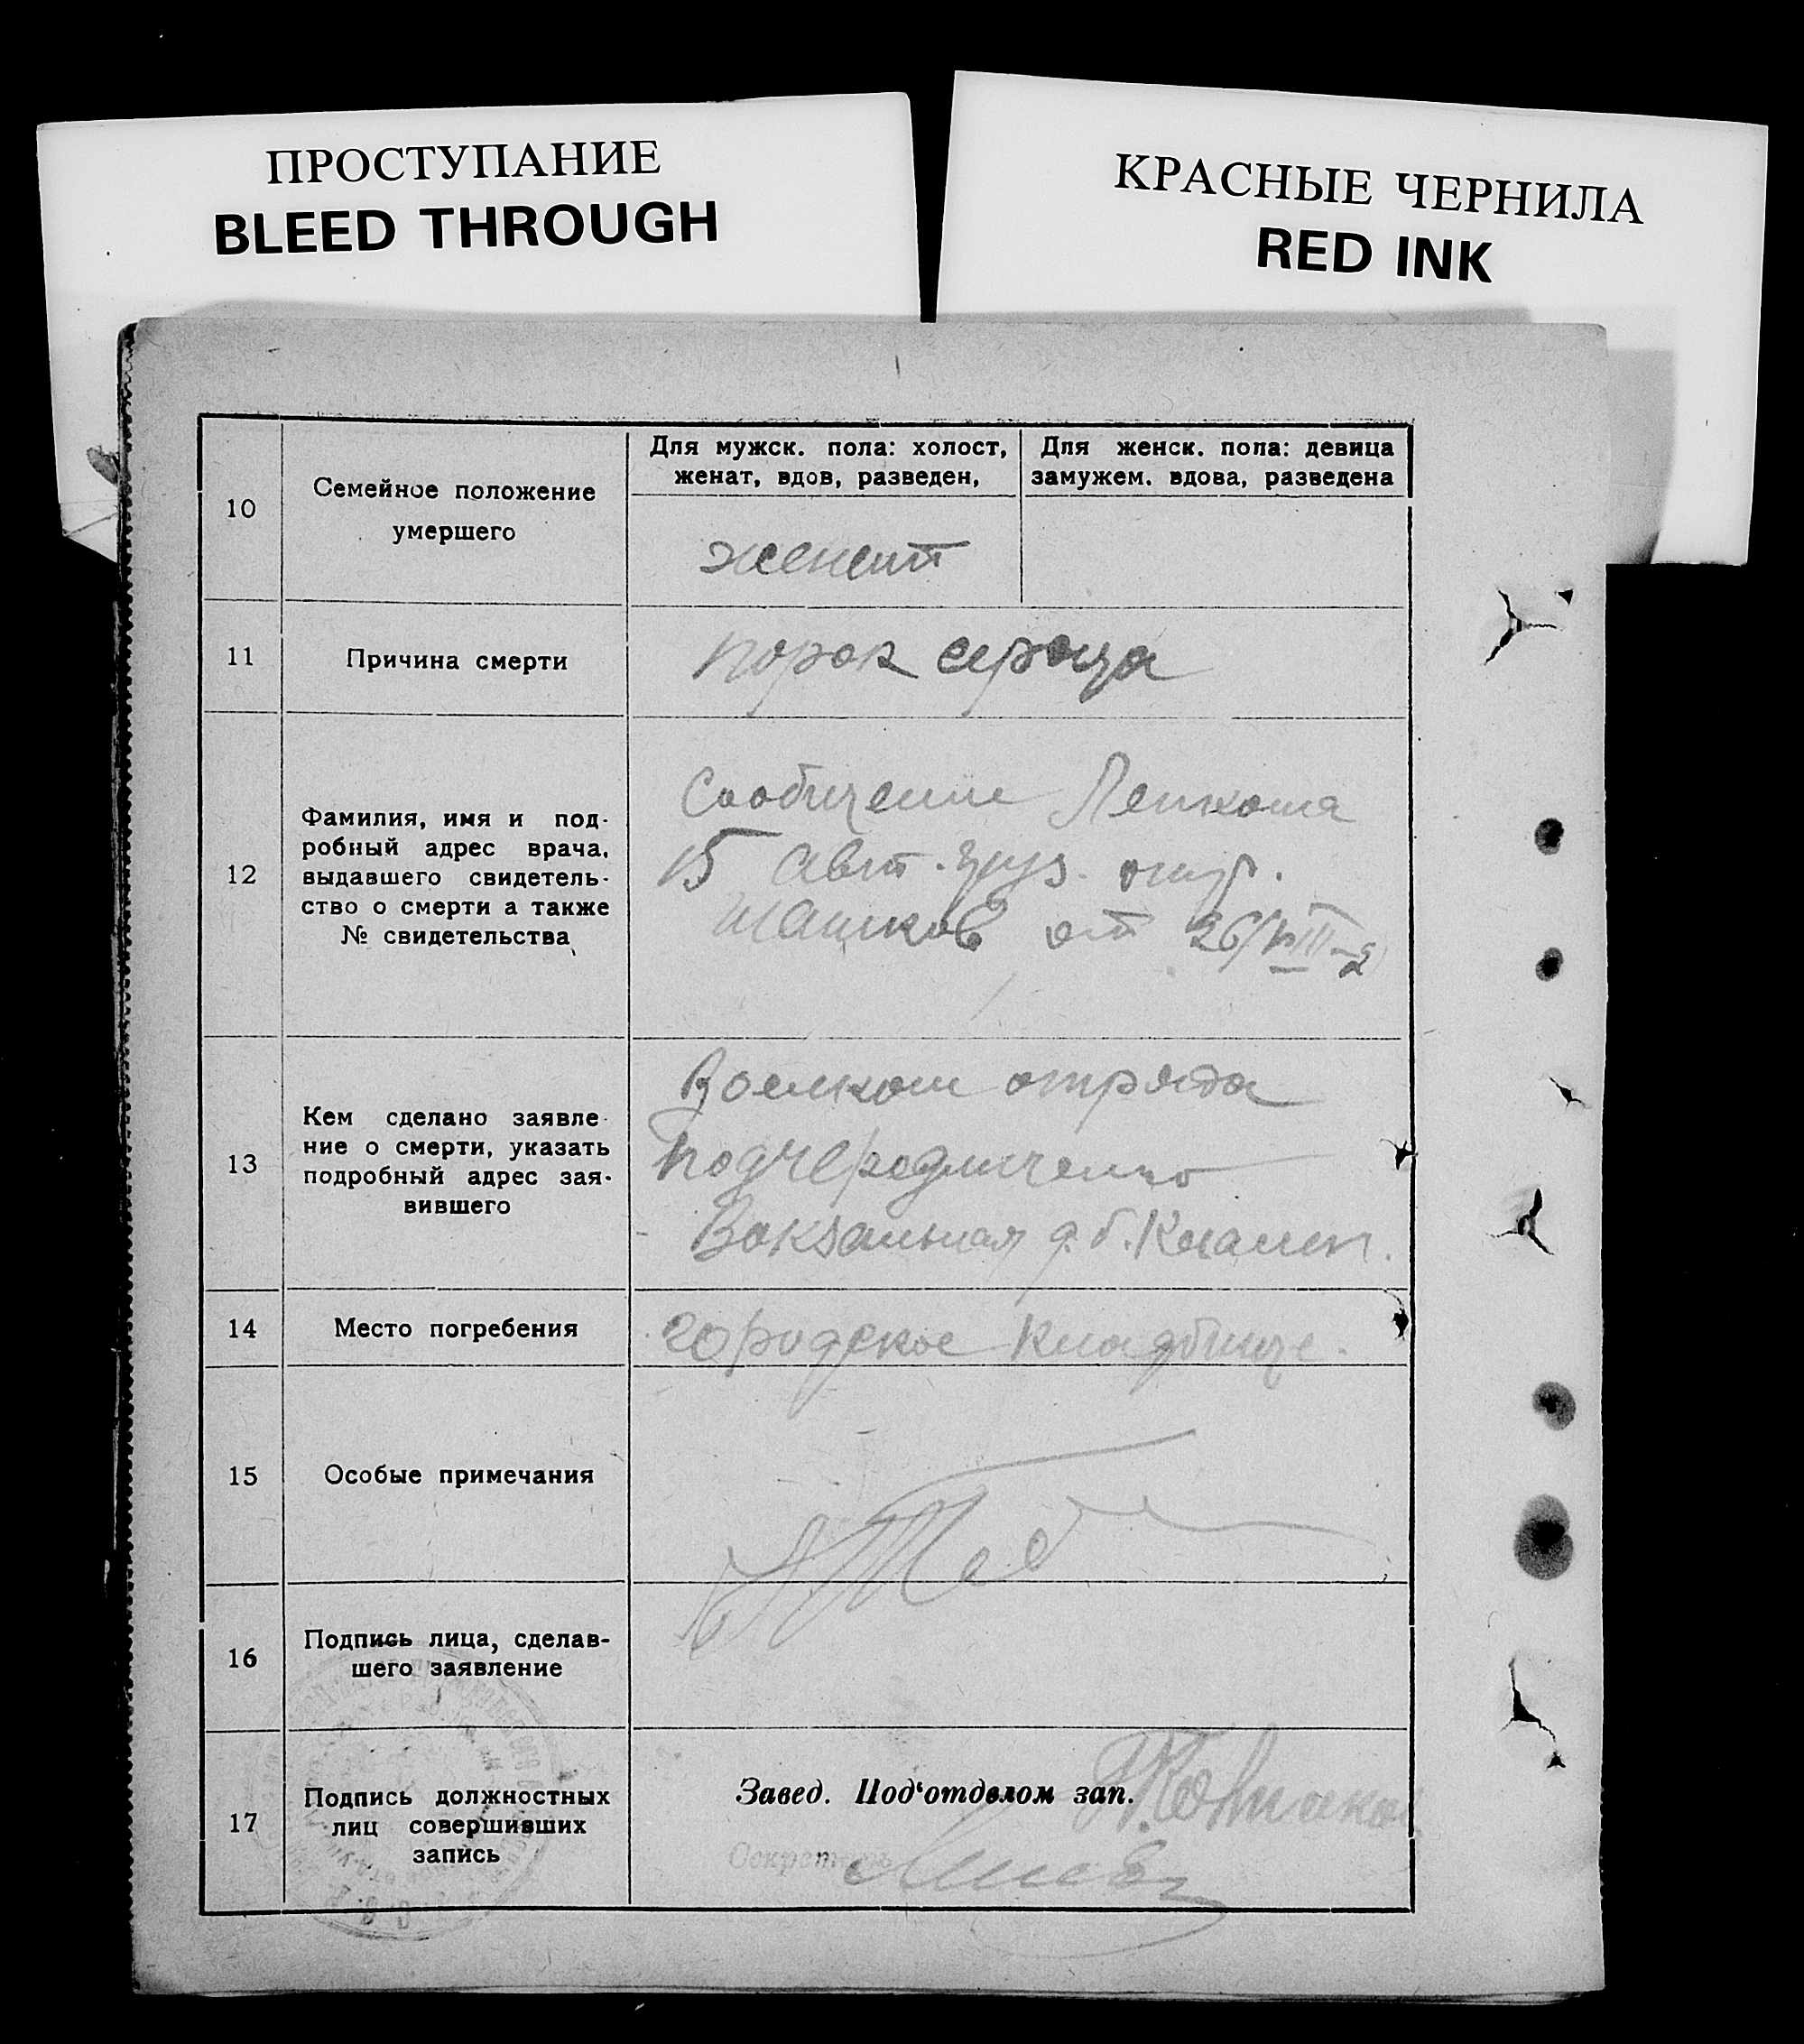 ПРОСТУПАНИЕ
BLEED THROUGH
КРАСНЫЕ ЧЕРНИЛА
RED INK
10
Семейное положение
умершего
Для мужск. пола: холост,
женат, вдов, разведен,
Для женск. пола: девица
замужем. вдова, разведена
женат
11
Причина смерти
порок сердца
12
Фамилия, имя и под-
робный адрес врача,
выдавшего свидетель-
ство о смерти а также
№ свидетельства
Сообщение
15 авт. груз. отр.
от 26/VIII-2
13
Кем сделано заявле-
ние о смерти, указать
подробный адрес зая-
вившего
Военком отряда
Подчередниченко
Вокзальная д. б.
14
Место погребения
городское кладбище.
15
Особые примечания
16
Подпись лица, сделав-
шего заявление
17
Подпись должностных
лиц совершивших
запись
Завед. Под‘отделом зап.
Секретарь